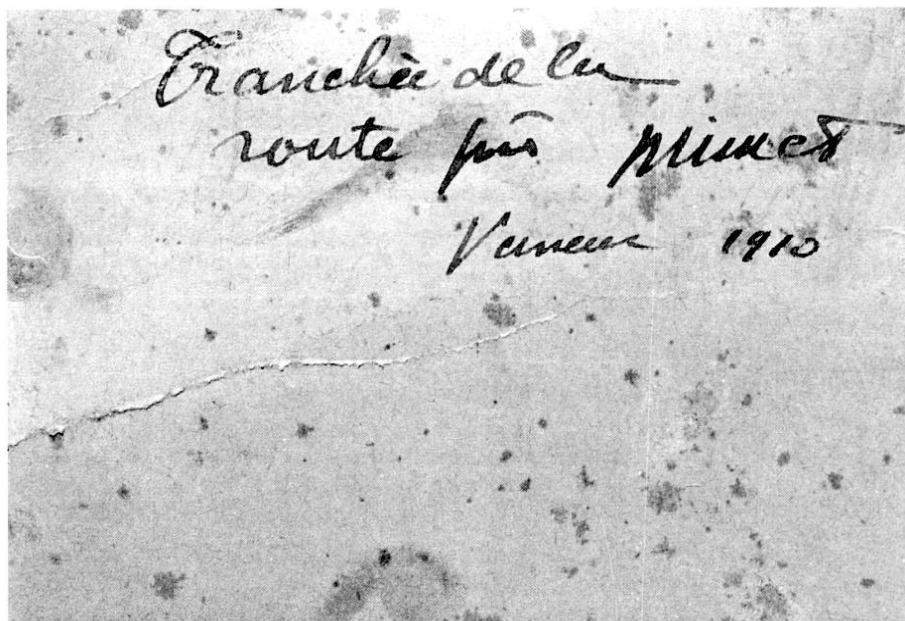 Tranchée de la
route près
1910